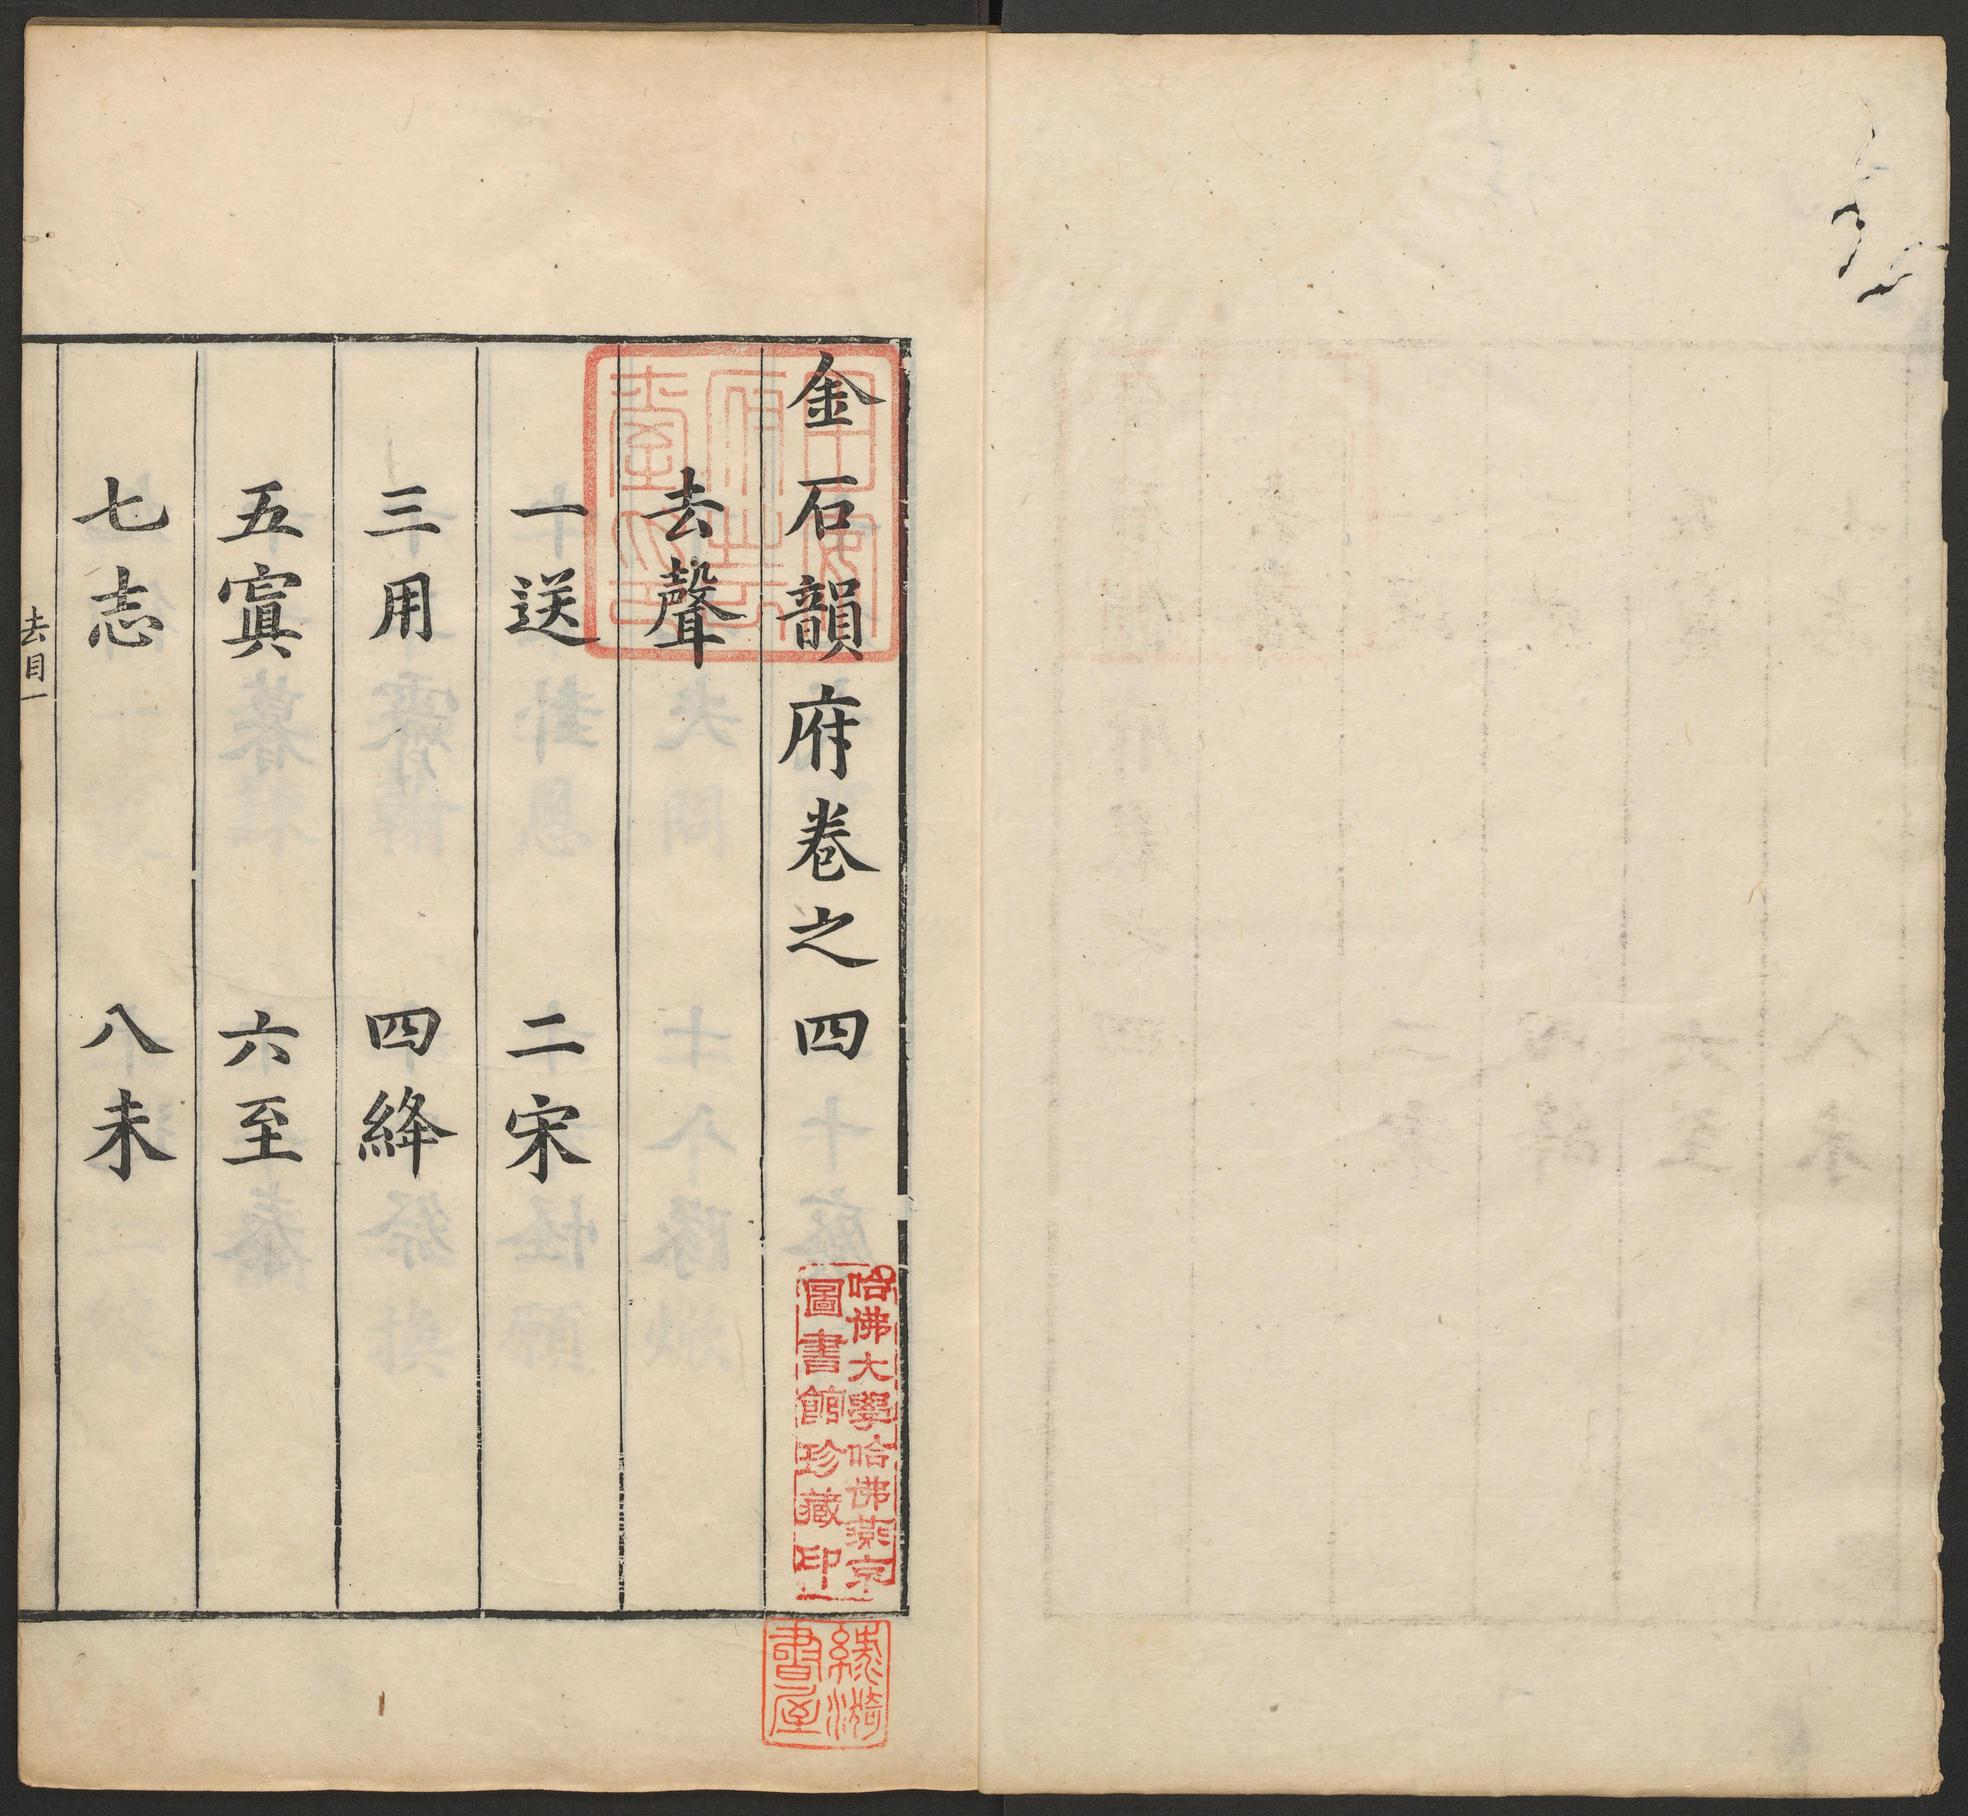 金石韻府卷之四
去聲
一送 二宋
三用 四絳
五寘 六至
七志 八未
去目一
哈佛大學哈佛燕京
圖書館珍藏印
綠漪
書屋